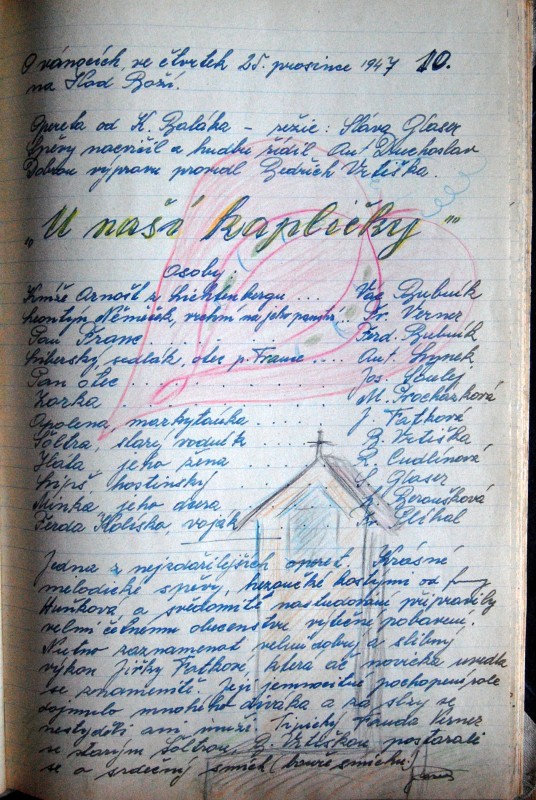 O vánocích, ve čtvrtek 25. prosince 1947 10.
na Hod Boží.
Opereta od K. Baláka – režie: Sláva Glaser
Zpěvy nacvičil a hudbu řídil Ant. Duchoslav
Dobrou výpravu provedl Bedřich Vrtiška.
„U naší kapličky"
Osoby:
Kníže Arnošt z Lichtenbergu ... Vác. Bubník
Leontýn Němeček, vrchní na jeho panství Fr. Verner
Pan Franc ..... Ferd. Bubník
sedlák, otec p. France .... Ant.
Pan otec ........ Jos.
........ M. Procházková
Apolena, markytánka ...... J. Fatková
Šoltra, starý vodník .... B. Vrtiška
jeho žena .... Cudlínová
hostinský ..... S. Glaser
Minka, jeho dcera ... Beroušková
Ferda Koliska, voják
Jedna z nejzdařilejších operet. Krásné
melodické zpěvy, hezoučké kostýmy od
Hunkova, a svědomité nastudování připravily
velmi četnému obecenstvu výtečné pobavení.
Nutno zaznamenat velmi dobrý a slibný
výkon Jiřky Fatkové, která ač novicka uvedla
se znamenitě. Její jemnocitné pochopení role
dojmulo mnohého diváka a za slzy se
nestyděli ani muži. Typický Franda Verner
se starým Šoltrou, B. Vrtiškou, postarali
se o srdečný smích (bouře smíchu.)